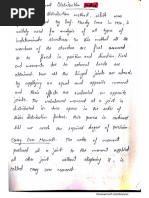 Moment Distribution Method
Moment distribution method, which was
by Prof. Hardy Cross in 1930, is
widely used for analysis of all types of
indeterminate structures. In this method all the
members of the structure are first assumed
to be fixed in position and direction. First
end moments due to external loads are
obtained. Now all the hinged joints are released
by applying an equal and opposite moment
and their effects are evaluated on opposite
joints. The unbalanced moment at a joint is
distributed in the spans in the ratio of
their distribution factors. This process is continued
till we reach the required degree of precision.
Carry Over Moment: The ratio of moment
produced at a joint to the moment applied
at the other joint without displacing it, is
called carry over moment.